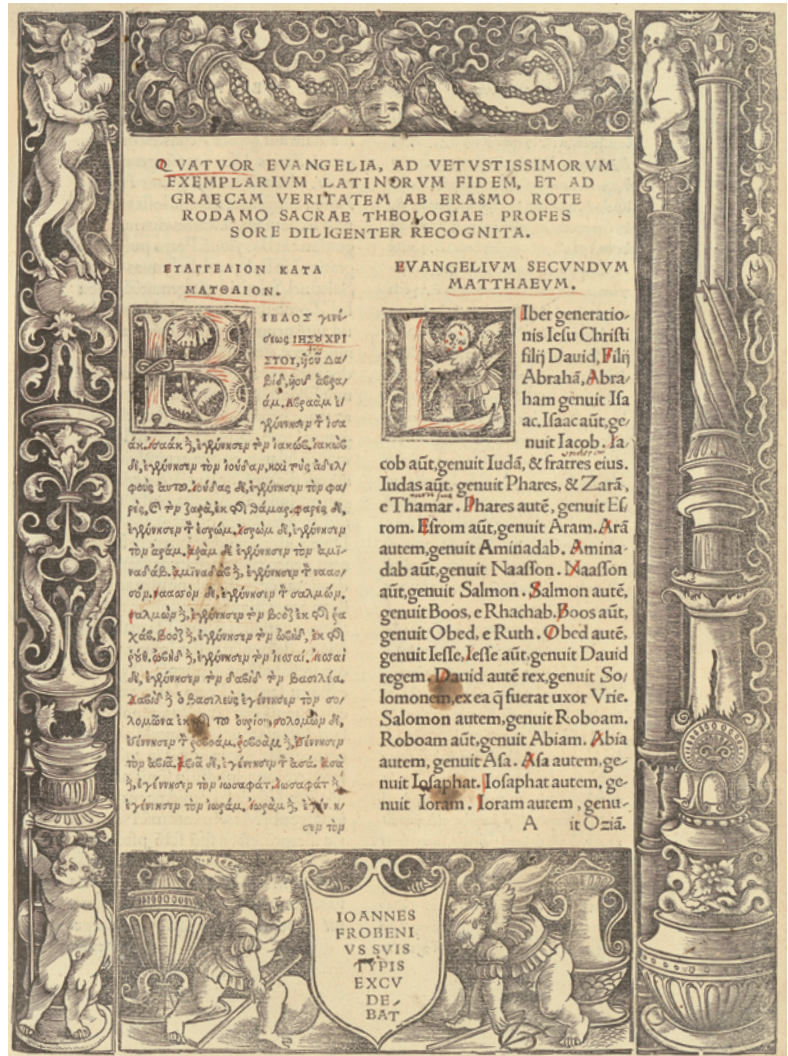 QVATVOR EVANGELIA, AD VETVSTISSIMORVM
EXEMPLARIVM LATINORVM FIDEM, ET AD
GRAECAM VERITATEM AB ERASMO ROTE
RODAMO SACRAE THEOLOGIAE PROFES
SORE DILIGENTER RECOGNITA.
ΕΥΑΓΓΕΛΙΟΝ ΚΑΤΑ
ΜΑΤΘΑΙΟΝ.
ΒΙΒΛΟΣ γενέ
σεως ΙΗΣΟΥ ΧΡΙ
ΣΤΟΥ, ὑοῦ Δα
βίδ, ὑοῦ ἀβρα
άμ. Αβραὰμ ἐ
γέννησεν τὸν ἰσα
ὰκ. ἰσαὰκ δὲ, ἐγέννησεν τὸν ἰακώβ. ἰακὼβ
δὲ, ἐγέννησεν τὸν ἰούδαν, καὶ τοὺς ἀδελ
φοὺς αυτου. ἰούδας δὲ, ἐγέννησεν τὸν φα
ρὲς, καὶ τὸν ζαρὰ, ἐκ τῆς θάμαρ. φαρὲς δὲ,
ἐγέννησεν τὸν ἐσρώμ. ἐσρὼμ δὲ, ἐγέννησεν
τὸν ἀράμ. ἀρὰμ δὲ ἐγέννησεν τὸν ἀμι
ναδάβ. ἀμιναδὰβ δὲ, ἐγέννησεν τὸν ναασ
σόν. ναασὸν δὲ, ἐγέννησεν τὸν σαλμών.
σαλμὼν δὲ, ἐγέννησεν τὸν βοὸζ ἐκ τῆς ρα
χάβ. βοὸζ δὲ, ἐγέννησεν τὸν ὠβὴδ, ἐκ τῆς
ῥούθ. ὠβὴδ δὲ, ἐγέννησεν τὸν ἰεσσαί. ἰεσσαὶ
δὲ, ἐγέννησεν τὸν δαβὶδ τὸν βασιλέα.
Δαβὶδ δὲ ὁ βασιλεὺς ἐγέννησεν τὸν σο
λομῶνα ἐκ τῆς του ουρίου. σολομὼν δὲ,
ἐγέννησεν τὸν ῥοβοάμ. ῥοβοὰμ δὲ, ἐγέννησεν
τὸν ἀβιά. ἀβιὰ δὲ, ἐγέννησεν τὸν ἀσά. ἀσὰ
δὲ, ἐγέννησεν τὸν ἰωσαφάτ. ἰωσαφὰτ δὲ
ἐγέννησεν τὸν ἰωράμ. ἰωρὰμ δὲ, ἐγέννη
σεν τὸν
EVANGELIVM SECVNDVM
MATTHAEVM.
LIber generatio-
nis Iesu Christi
filij Dauid, Filij
Abrahā, Abra-
ham genuit Isa
ac. Isaac aūt, ge-
nuit Iacob. Ia-
cob aūt, genuit Iudā, & fratres eius.
Iudas aūt, genuit Phares, & Zarā,
e Thamar. Phares autē, genuit Es-
rom. Esrom aūt, genuit Aram. Arā
autem, genuit Aminadab. Amina-
dab aūt, genuit Naasson. Naasson
aūt, genuit Salmon. Salmon autē,
genuit Boos, e Rhachab. Boos aūt,
genuit Obed, e Ruth. Obed autē,
genuit Iesse. Iesse aūt, genuit Dauid
regem. Dauid autē rex, genuit So/
lomonem, ex ea q̄ fuerat uxor Vrie.
Salomon autem, genuit Roboam.
Roboam aūt, genuit Abiam. Abia
autem, genuit Asa. Asa autem, ge-
nuit Iosaphat. Iosaphat autem, ge-
nuit Ioram. Ioram autem, genu-
A it Oziā.
IOANNES
FROBENI
VS SVIS
TYPIS
EXCV
DE-
BAT